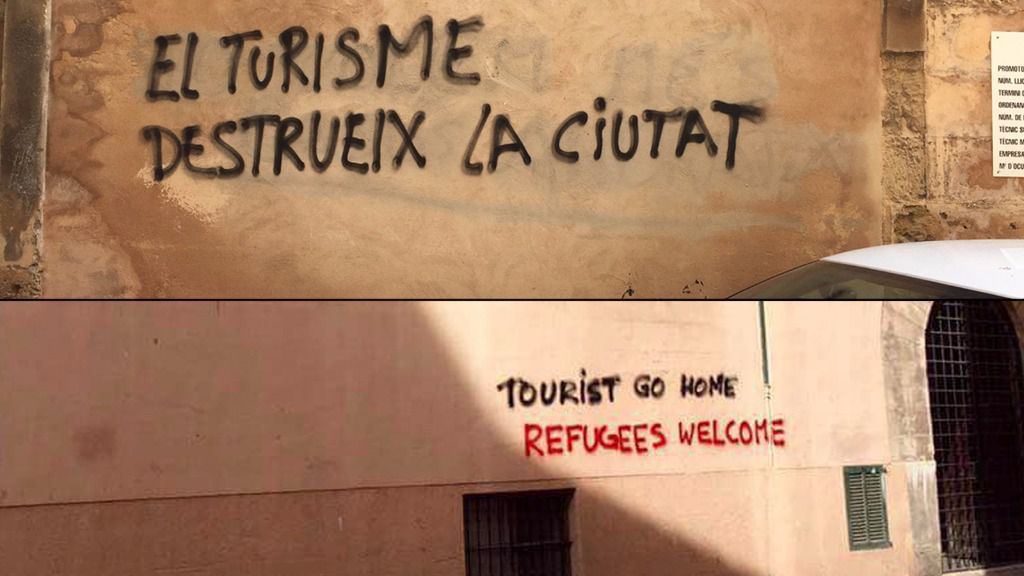 EL TURISME
DESTRUEIX LA CIUTAT
PROMOTO
NÚM. LLI
TERMINI D
ORDENAN
NÚM. DE
TÈCNIC S
TÈCNIC M
EMPRESA
Mº D'OCU
TOURIST GO HOME
REFUGEES WELCOME